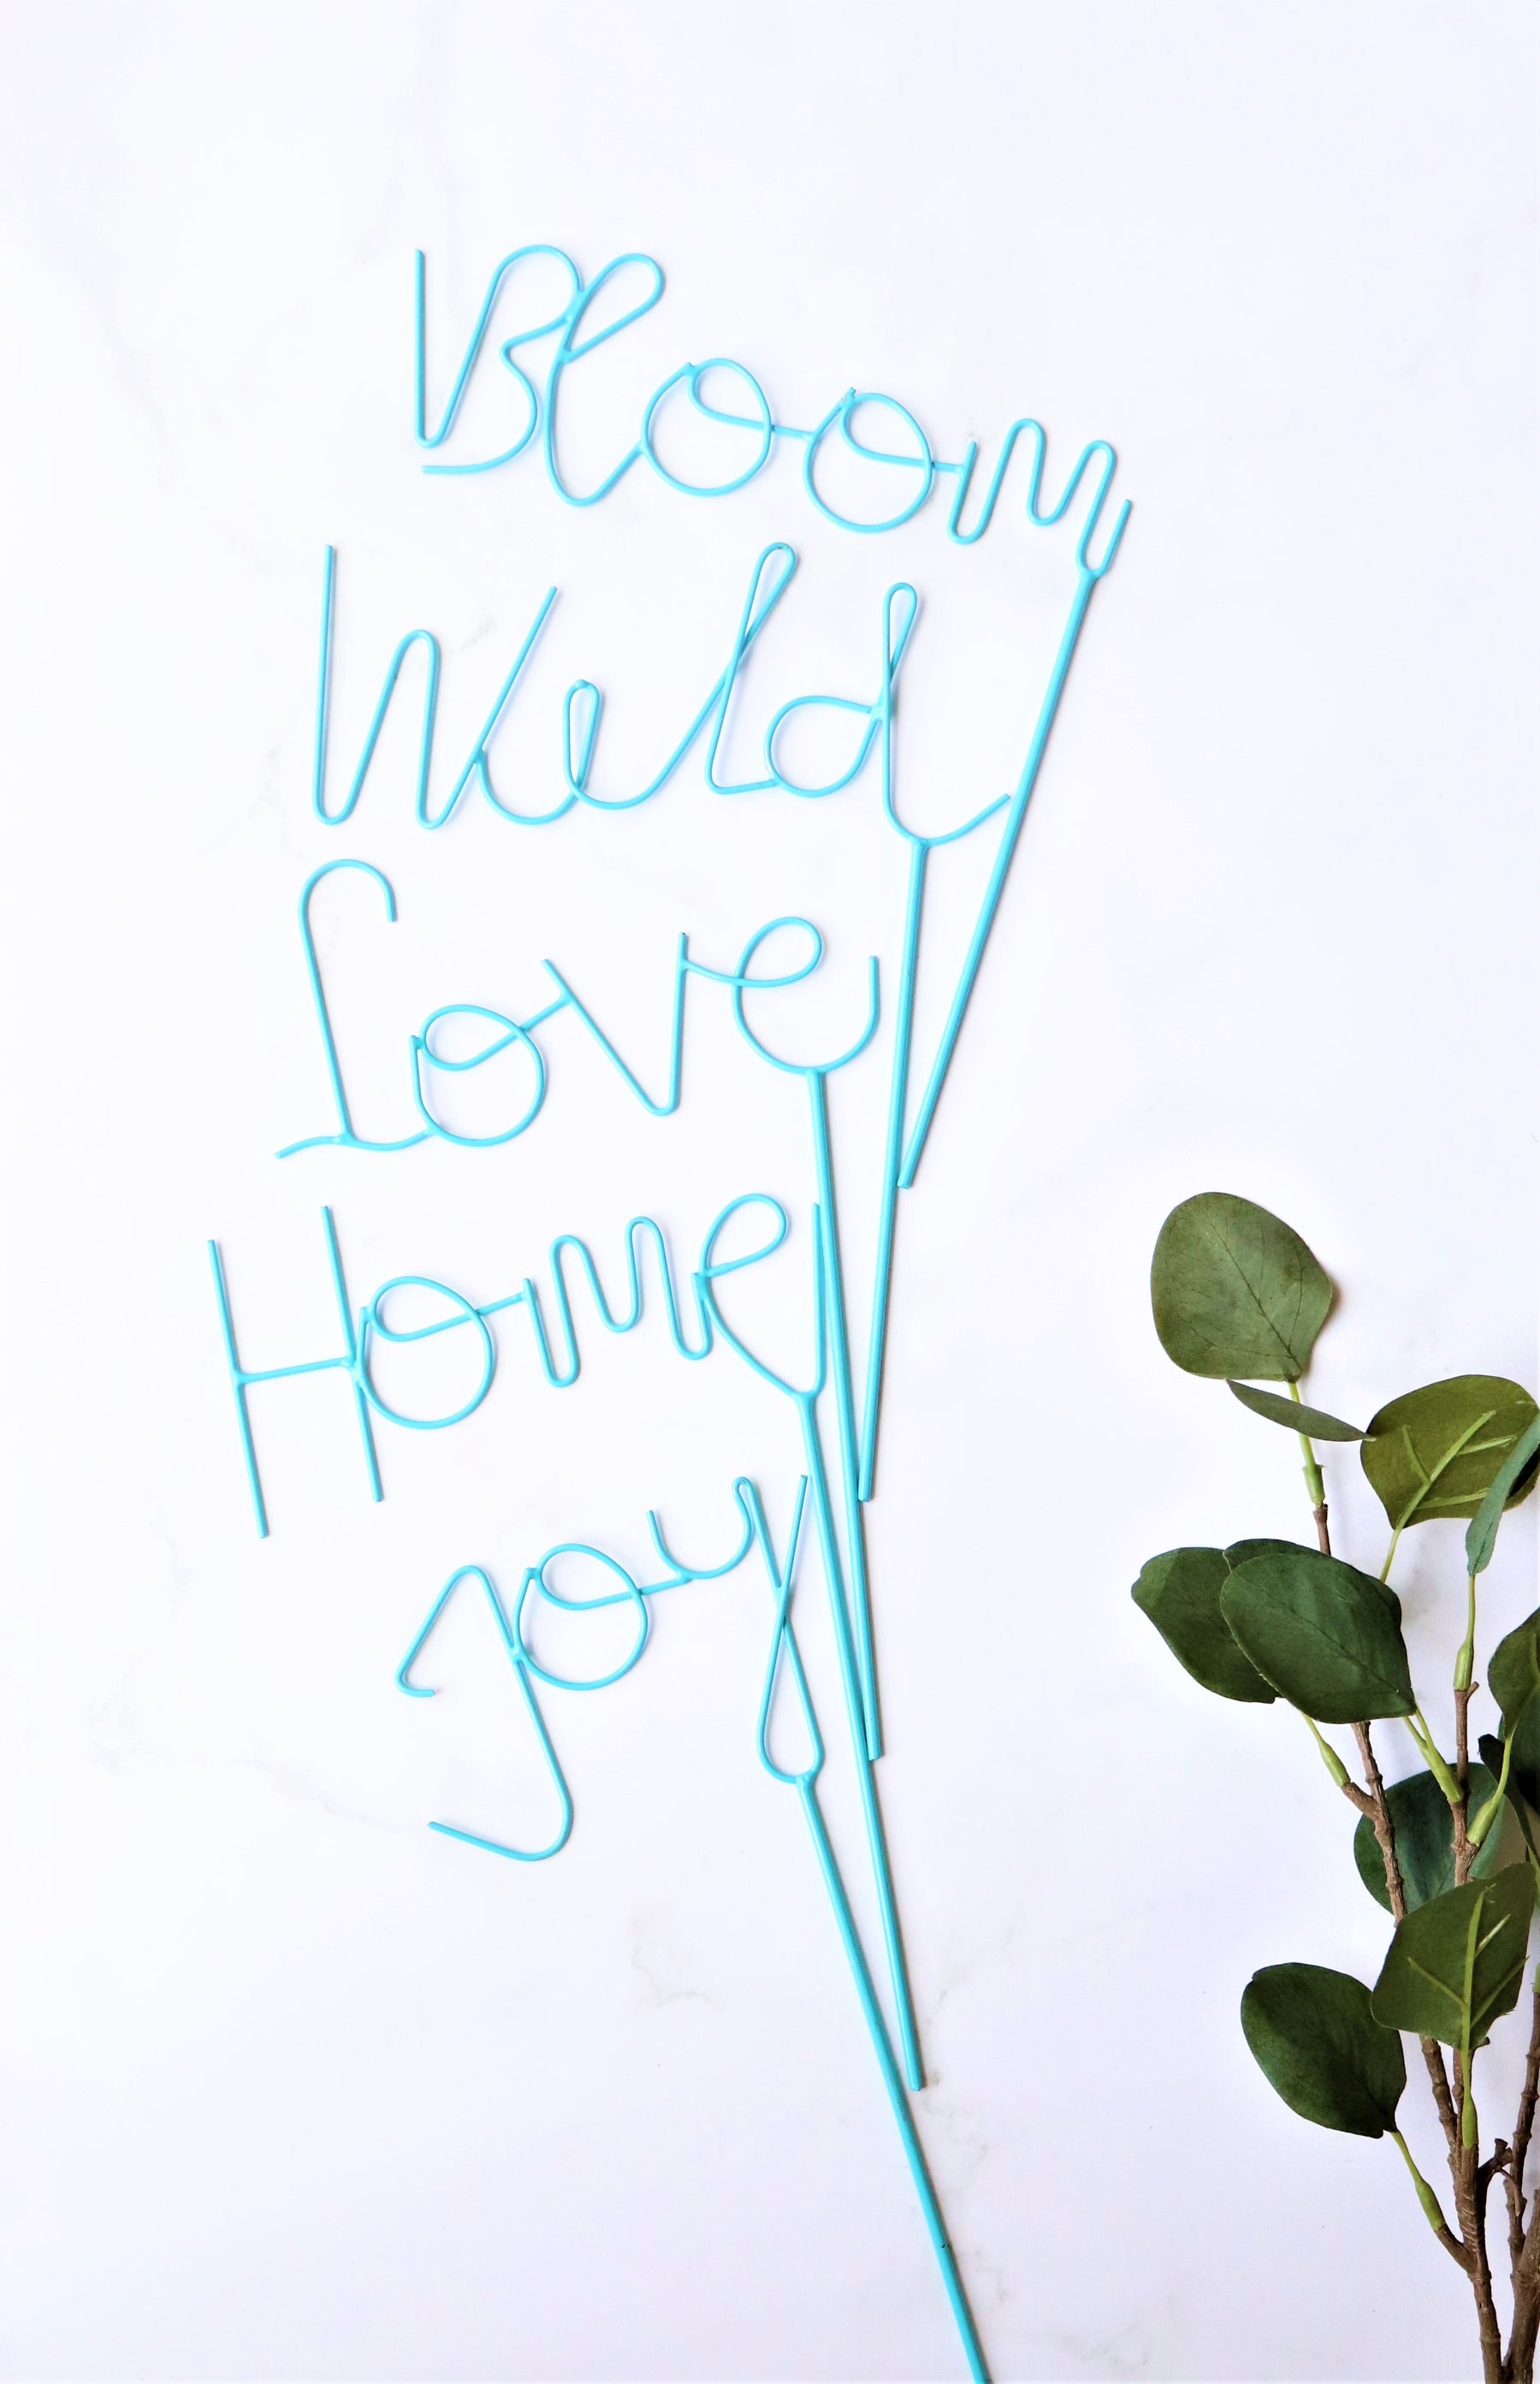 Bloom
Wild
Love
Home
Joy